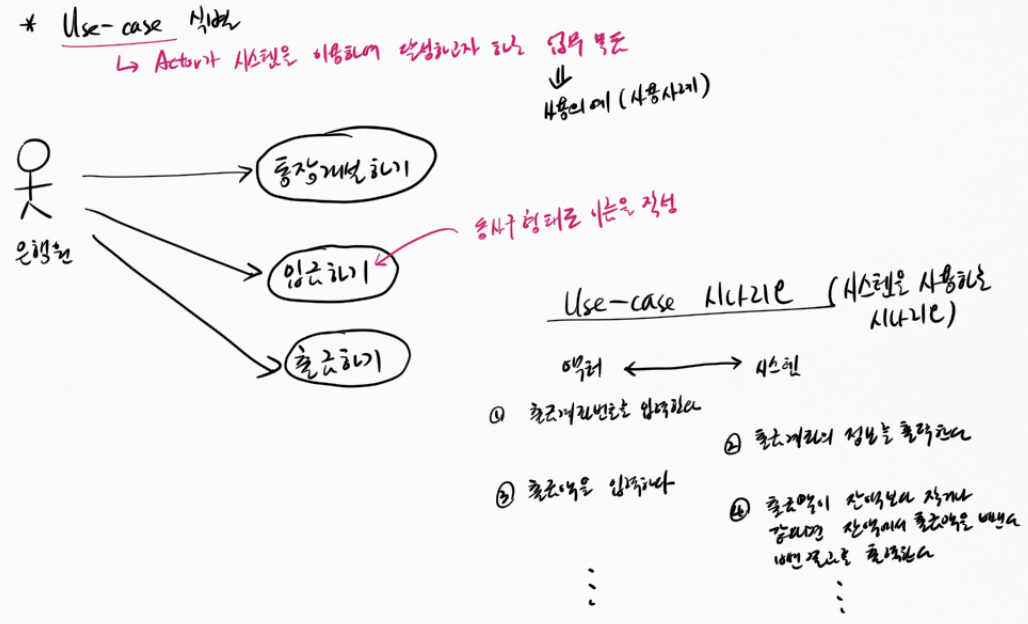 * Use-case 식별
↳ Actor가 시스템을 이용하여 달성하고자 하는 업무 목표
⇓
사용의 예 (사용사례)
통장개설하기
은행원
동사구 형태로 이름을 작성
입금하기
출금하기
Use-case 시나리오 (시스템을 사용하는
시나리오)
액터 ↔ 시스템
① 출금계좌번호를 입력한다
② 출금계좌의 정보를 출력한다
③ 출금액을 입력한다
④ 출금액이 잔액보다 작거나
같다면 잔액에서 출금액을 뺀다
뺀 결과를 출력한다